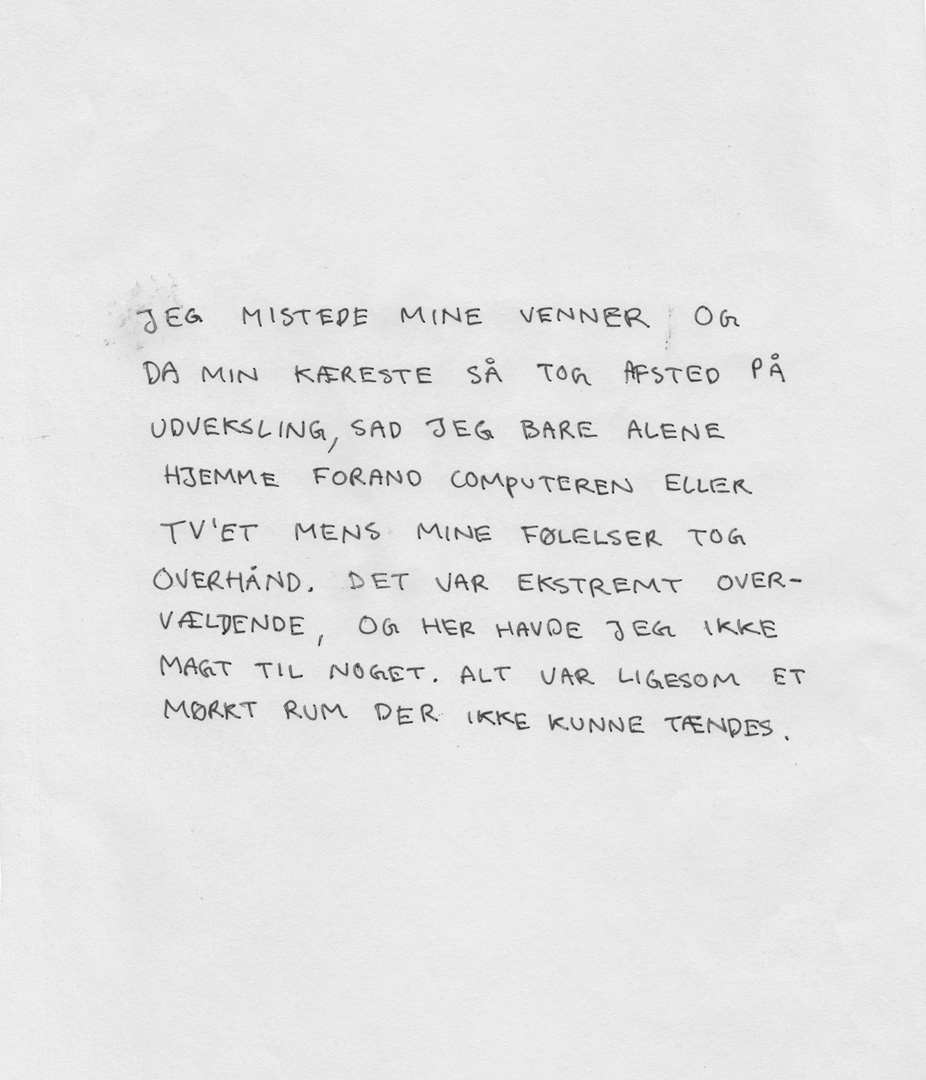 JEG MISTEDE MINE VENNER OG
DA MIN KÆRESTE SÅ TOG AFSTED PÅ
UDVEKSLING, SAD JEG BARE ALENE
HJEMME FORAND COMPUTEREN ELLER
TV'ET MENS MINE FØLELSER TOG
OVERHÅND. DET VAR EKSTREMT OVER-
VÆLDENDE, OG HER HAVDE JEG IKKE
MAGT TIL NOGET. ALT VAR LIGESOM ET
MØRKT RUM DER IKKE KUNNE TÆNDES.